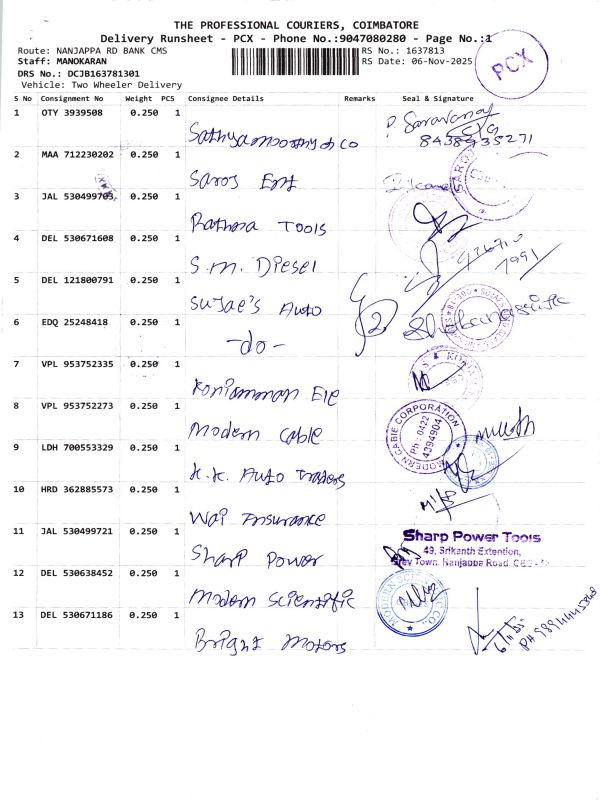 THE PROFESSIONAL COURIERS, COIMBATORE
Delivery Runsheet - PCX - Phone No.:9047080280 - Page No.:1
Route: NANJAPPA RD BANK CMS RS No.: 1637813
Staff: MANOKARAN RS Date: 06-Nov-2025
DRS No.: DCJB163781301
Vehicle: Two Wheeler Delivery
PCX
S No Consignment No Weight PCS Consignee Details Remarks Seal & Signature
1 OTY 3939508 0.250 1 Sathyamoorthy & Co P. Saravanan
8438935271
2 MAA 712230202 0.250 1 Saros Ent
3 JAL 530499703 0.250 1 Rathna Tools
4 DEL 530671608 0.250 1 S.m. Diesel
5 DEL 121800791 0.250 1 Sujae's Auto
6 EDQ 25248418 0.250 1 -do-
7 VPL 953752335 0.250 1 Koniamman Ele
8 VPL 953752273 0.250 1 Modern Cable MODERN CABLE CORPORATION
Ph : 0422
4394904
9 LDH 700553329 0.250 1 K.K. Auto Traders
10 HRD 362885573 0.250 1 Insurance
11 JAL 530499721 0.250 1 Sharp Power Sharp Power Tools
49, Srikanth Extention,
Town, Nanjappa Road, CBE
12 DEL 530638452 0.250 1 Modern Scientific MODERN SCIENTIFIC CO.
13 DEL 530671186 0.250 1 Bright Motors